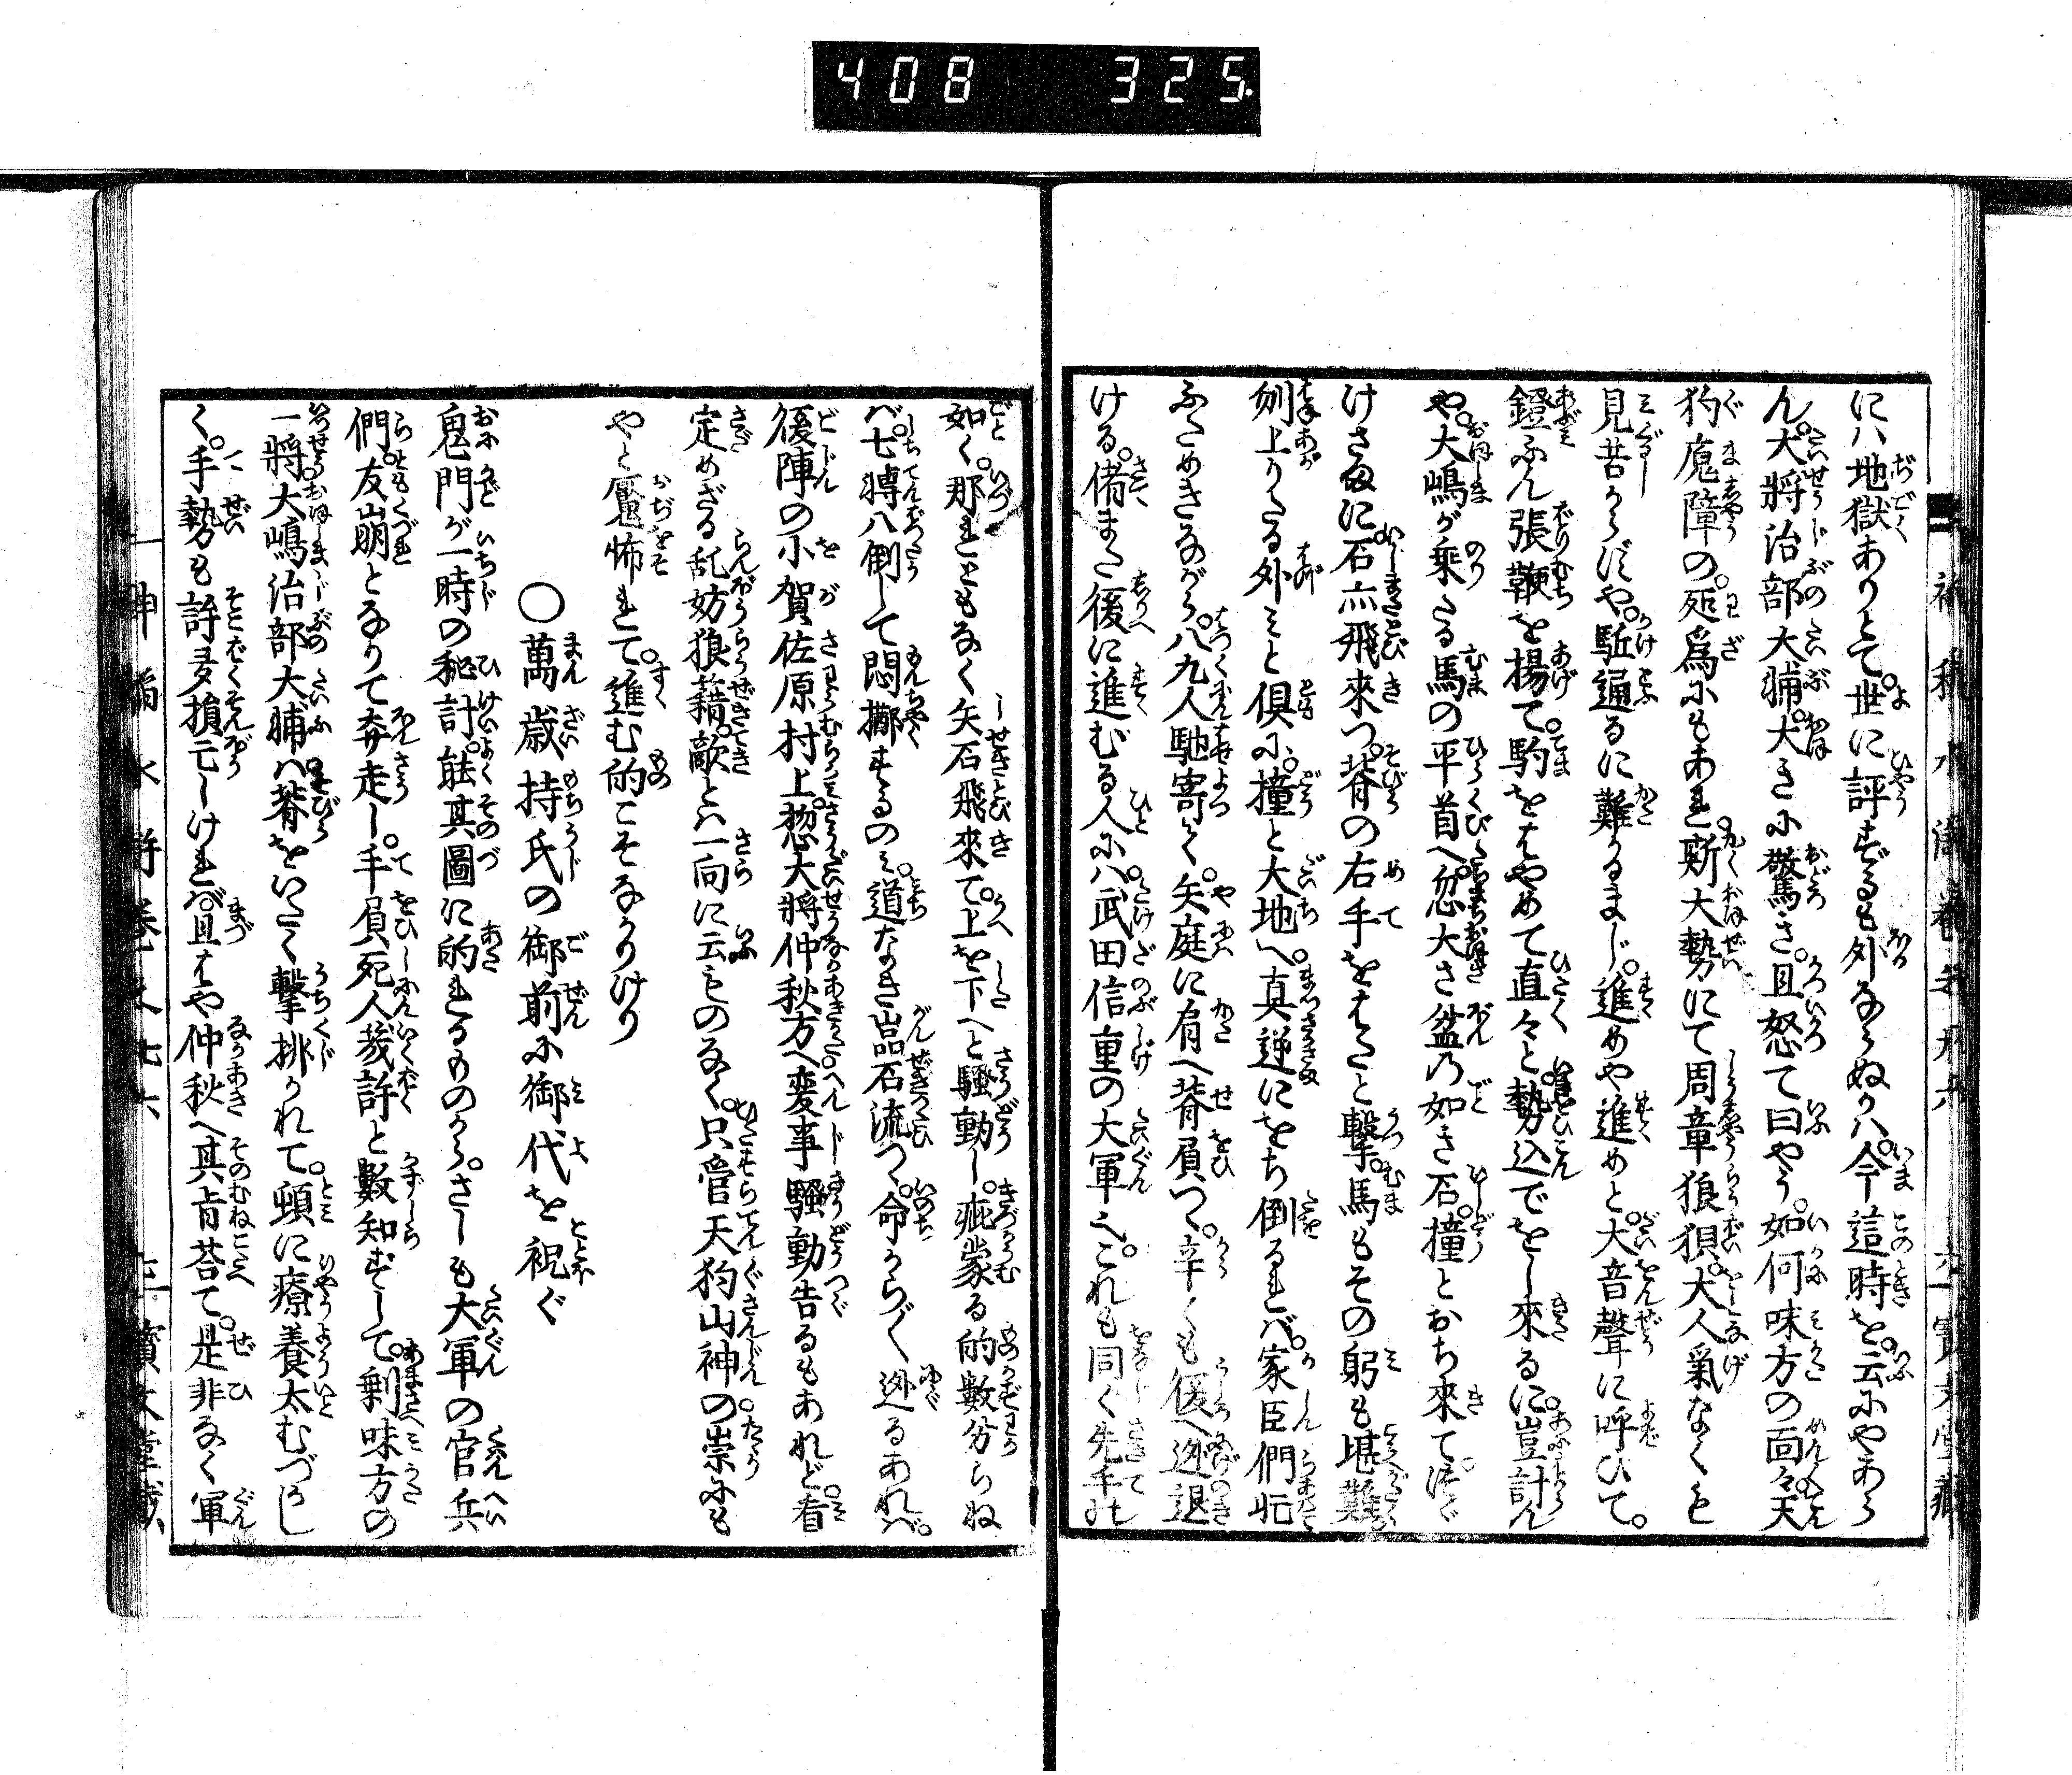 408 325.
にハ地獄ありとて。世に評するも外ならぬか八。今這時を。云にやあら
ん。大將治部大輔。大きに驚き。且怒て曰やう。如何味方の面々。天
狗魔障の。所爲にもあれ。斯大勢にて周章狼狽。大人氣なくも
見苦からずや。駈通るに難かるまじ。進めや進めと。大音聲に呼ひて。
鐙ふん張鞭を揚て。駒をはやめて直々と勢込でをし來るに。豈計ん
や。大嶋が乘たる馬の平首へ。忽大さ盆乃如き石。撞とおち來て。つゞ
けさまに石亦飛來つ。脊の右手をはたと撃。馬もその躬も堪難
刎上りたる外ミと倶に。撞と大地へ。真逆にをち倒るれバ。家臣們
ふためきながら。八九人馳寄て。矢庭に肩へ脊負つ。辛くも後へ迯退
ける。備また後に進むる人にハ。武田信重の大軍へ。これも同く先手
如く。那里ともなく矢石飛來て。上を下へと騷動し。疵蒙る的數分らね
バ。七轉八倒して悶擲するのミ。道なき嵓石流つ。命からがら迯るあれバ。
後陣の小賀佐原村上。惣大將仲秋方へ。変事騷動告るもあれど。看
定めざる乱妨狼藉。敵とハ一向に云ものなく。只管天狗山神の祟にも
やと。魘怖れて。進む的こそなかりけり
〇萬歳持氏の御前に御代を祝ぐ
鬼門が一時の秘計。能其圖に的れるものから。さしも大軍の官兵
們。友崩となりて奔走し。手負死人幾許と數知ずして。剰味方の
一將大嶋治部大輔ハ。脊をいたく撃挑かれて。頓に療養太むづかし
く。手勢も許多損亡しけれバ。且はや仲秋へ其旨荅て。是非なく軍